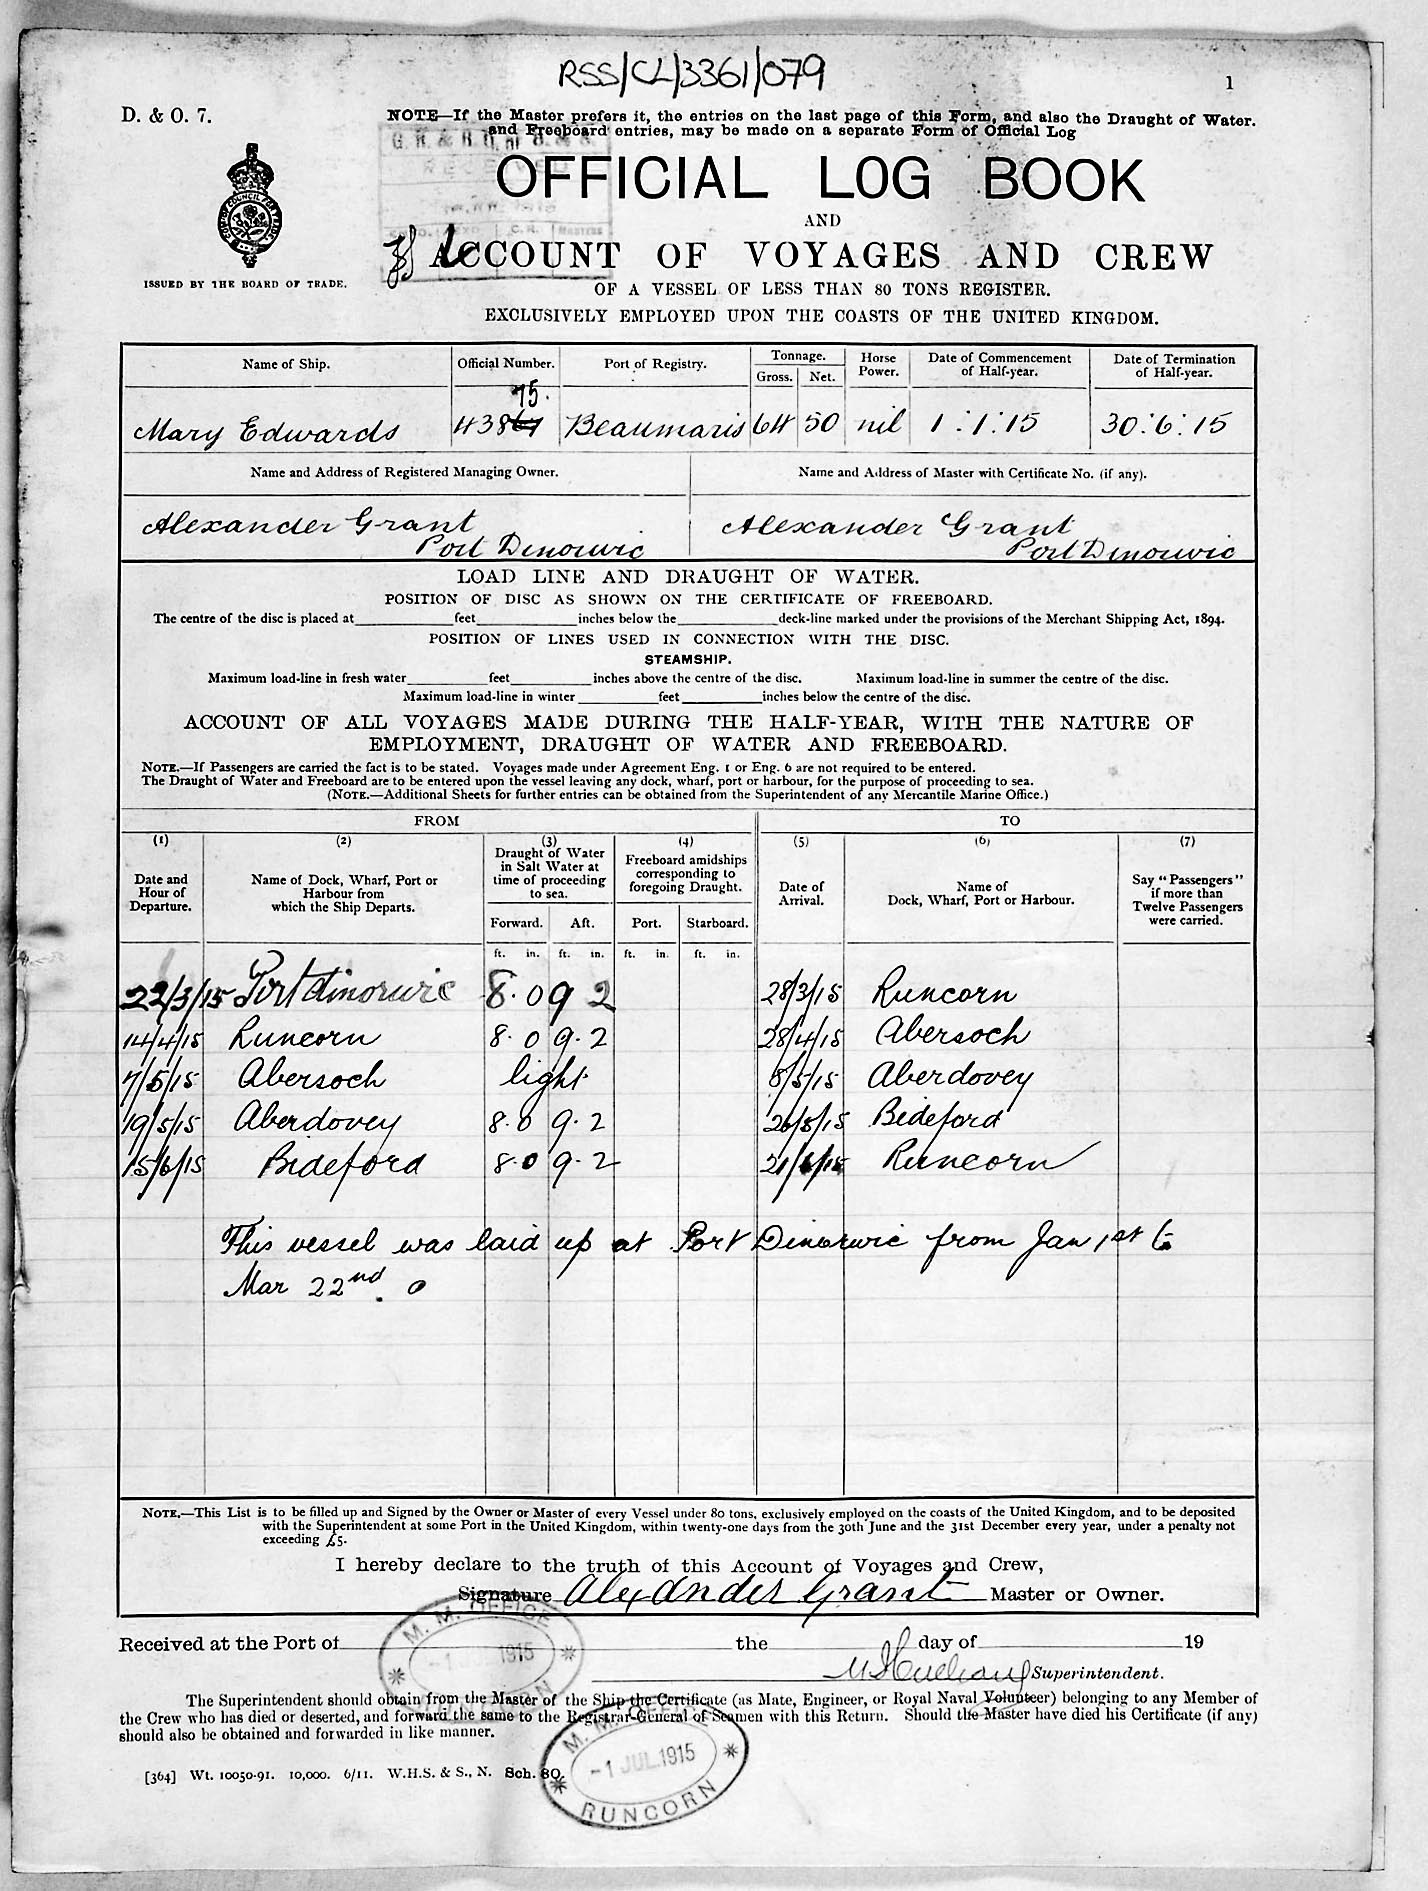 RSS/CL/3361/079
1
D. & O. 7.
NOTE—If the Master prefers it, the entries on the last page of this Form, and also the Draught of Water.
and Freeboard entries, may be made on a separate Form of Official Log
OFFICIAL LOG BOOK
AND
ACCOUNT OF VOYAGES AND CREW
ISSUED BY THE BOARD OF TRADE.
OF A VESSEL OF LESS THAN 80 TONS REGISTER.
EXCLUSIVELY EMPLOYED UPON THE COASTS OF THE UNITED KINGDOM.
Name of Ship. Official Number. Port of Registry. Tonnage. Horse Power. Date of Commencement of Half-year. Date of Termination of Half-year.
Gross. Net.
75.
Mary Edwards 438 Beaumaris 64 50 nil 1:1:15 30:6:15
Name and Address of Registered Managing Owner. Name and Address of Master with Certificate No. (if any).
Alexander Grant Alexander Grant
Port Dinorwic Port Dinorwic
LOAD LINE AND DRAUGHT OF WATER.
POSITION OF DISC AS SHOWN ON THE CERTIFICATE OF FREEBOARD.
The centre of the disc is placed at feet inches below the deck-line marked under the provisions of the Merchant Shipping Act, 1894.
POSITION OF LINES USED IN CONNECTION WITH THE DISC.
STEAMSHIP.
Maximum load-line in fresh water feet inches above the centre of the disc. Maximum load-line in summer the centre of the disc.
Maximum load-line in winter feet inches below the centre of the disc.
ACCOUNT OF ALL VOYAGES MADE DURING THE HALF-YEAR, WITH THE NATURE OF
EMPLOYMENT, DRAUGHT OF WATER AND FREEBOARD.
NOTE.—If Passengers are carried the fact is to be stated. Voyages made under Agreement Eng. 1 or Eng. 6 are not required to be entered.
The Draught of Water and Freeboard are to be entered upon the vessel leaving any dock, wharf, port or harbour, for the purpose of proceeding to sea.
(NOTE.—Additional Sheets for further entries can be obtained from the Superintendent of any Mercantile Marine Office.)
FROM TO
(1) (2) (3) (4) (5) (6) (7)
Date and Hour of Departure. Name of Dock, Wharf, Port or Harbour from which the Ship Departs. Draught of Water in Salt Water at time of proceeding to sea. Freeboard amidships corresponding to foregoing Draught. Date of Arrival. Name of Dock, Wharf, Port or Harbour. Say "Passengers" if more than Twelve Passengers were carried.
Forward. Aft. Port. Starboard.
ft. in. ft. in. ft. in. ft. in.
22/3/15 Portdinorwic 8.0 9 2 28/3/15 Runcorn
14/4/15 Runcorn 8.0 9.2 28/4/15 Abersoch
7/5/15 Abersoch light 8/5/15 Aberdovey
19/5/15 Aberdovey 8.0 9.2 26/5/15 Bideford
15/6/15 Bideford 8.0 9.2 21/6/15 Runcorn
This vessel was laid up at Port Dinorwic from Jan 1st to
Mar 22nd.
NOTE.—This List is to be filled up and Signed by the Owner or Master of every Vessel under 80 tons, exclusively employed on the coasts of the United Kingdom, and to be deposited
with the Superintendent at some Port in the United Kingdom, within twenty-one days from the 30th June and the 31st December every year, under a penalty not
exceeding £5.
I hereby declare to the truth of this Account of Voyages and Crew,
Signature Alexander Grant Master or Owner.
Received at the Port of the day of 19
Superintendent.
M. M. OFFICE
-1 1915
The Superintendent should obtain from the Master of the Ship the Certificate (as Mate, Engineer, or Royal Naval Volunteer) belonging to any Member of
the Crew who has died or deserted, and forward the same to the Registrar-General of Seamen with this Return. Should the Master have died his Certificate (if any)
should also be obtained and forwarded in like manner.
[364] Wt. 10050-91. 10,000. 6/11. W.H.S. & S., N. Sch. 80.
M. M. OFFICE
-1 JUL.1915
RUNCORN